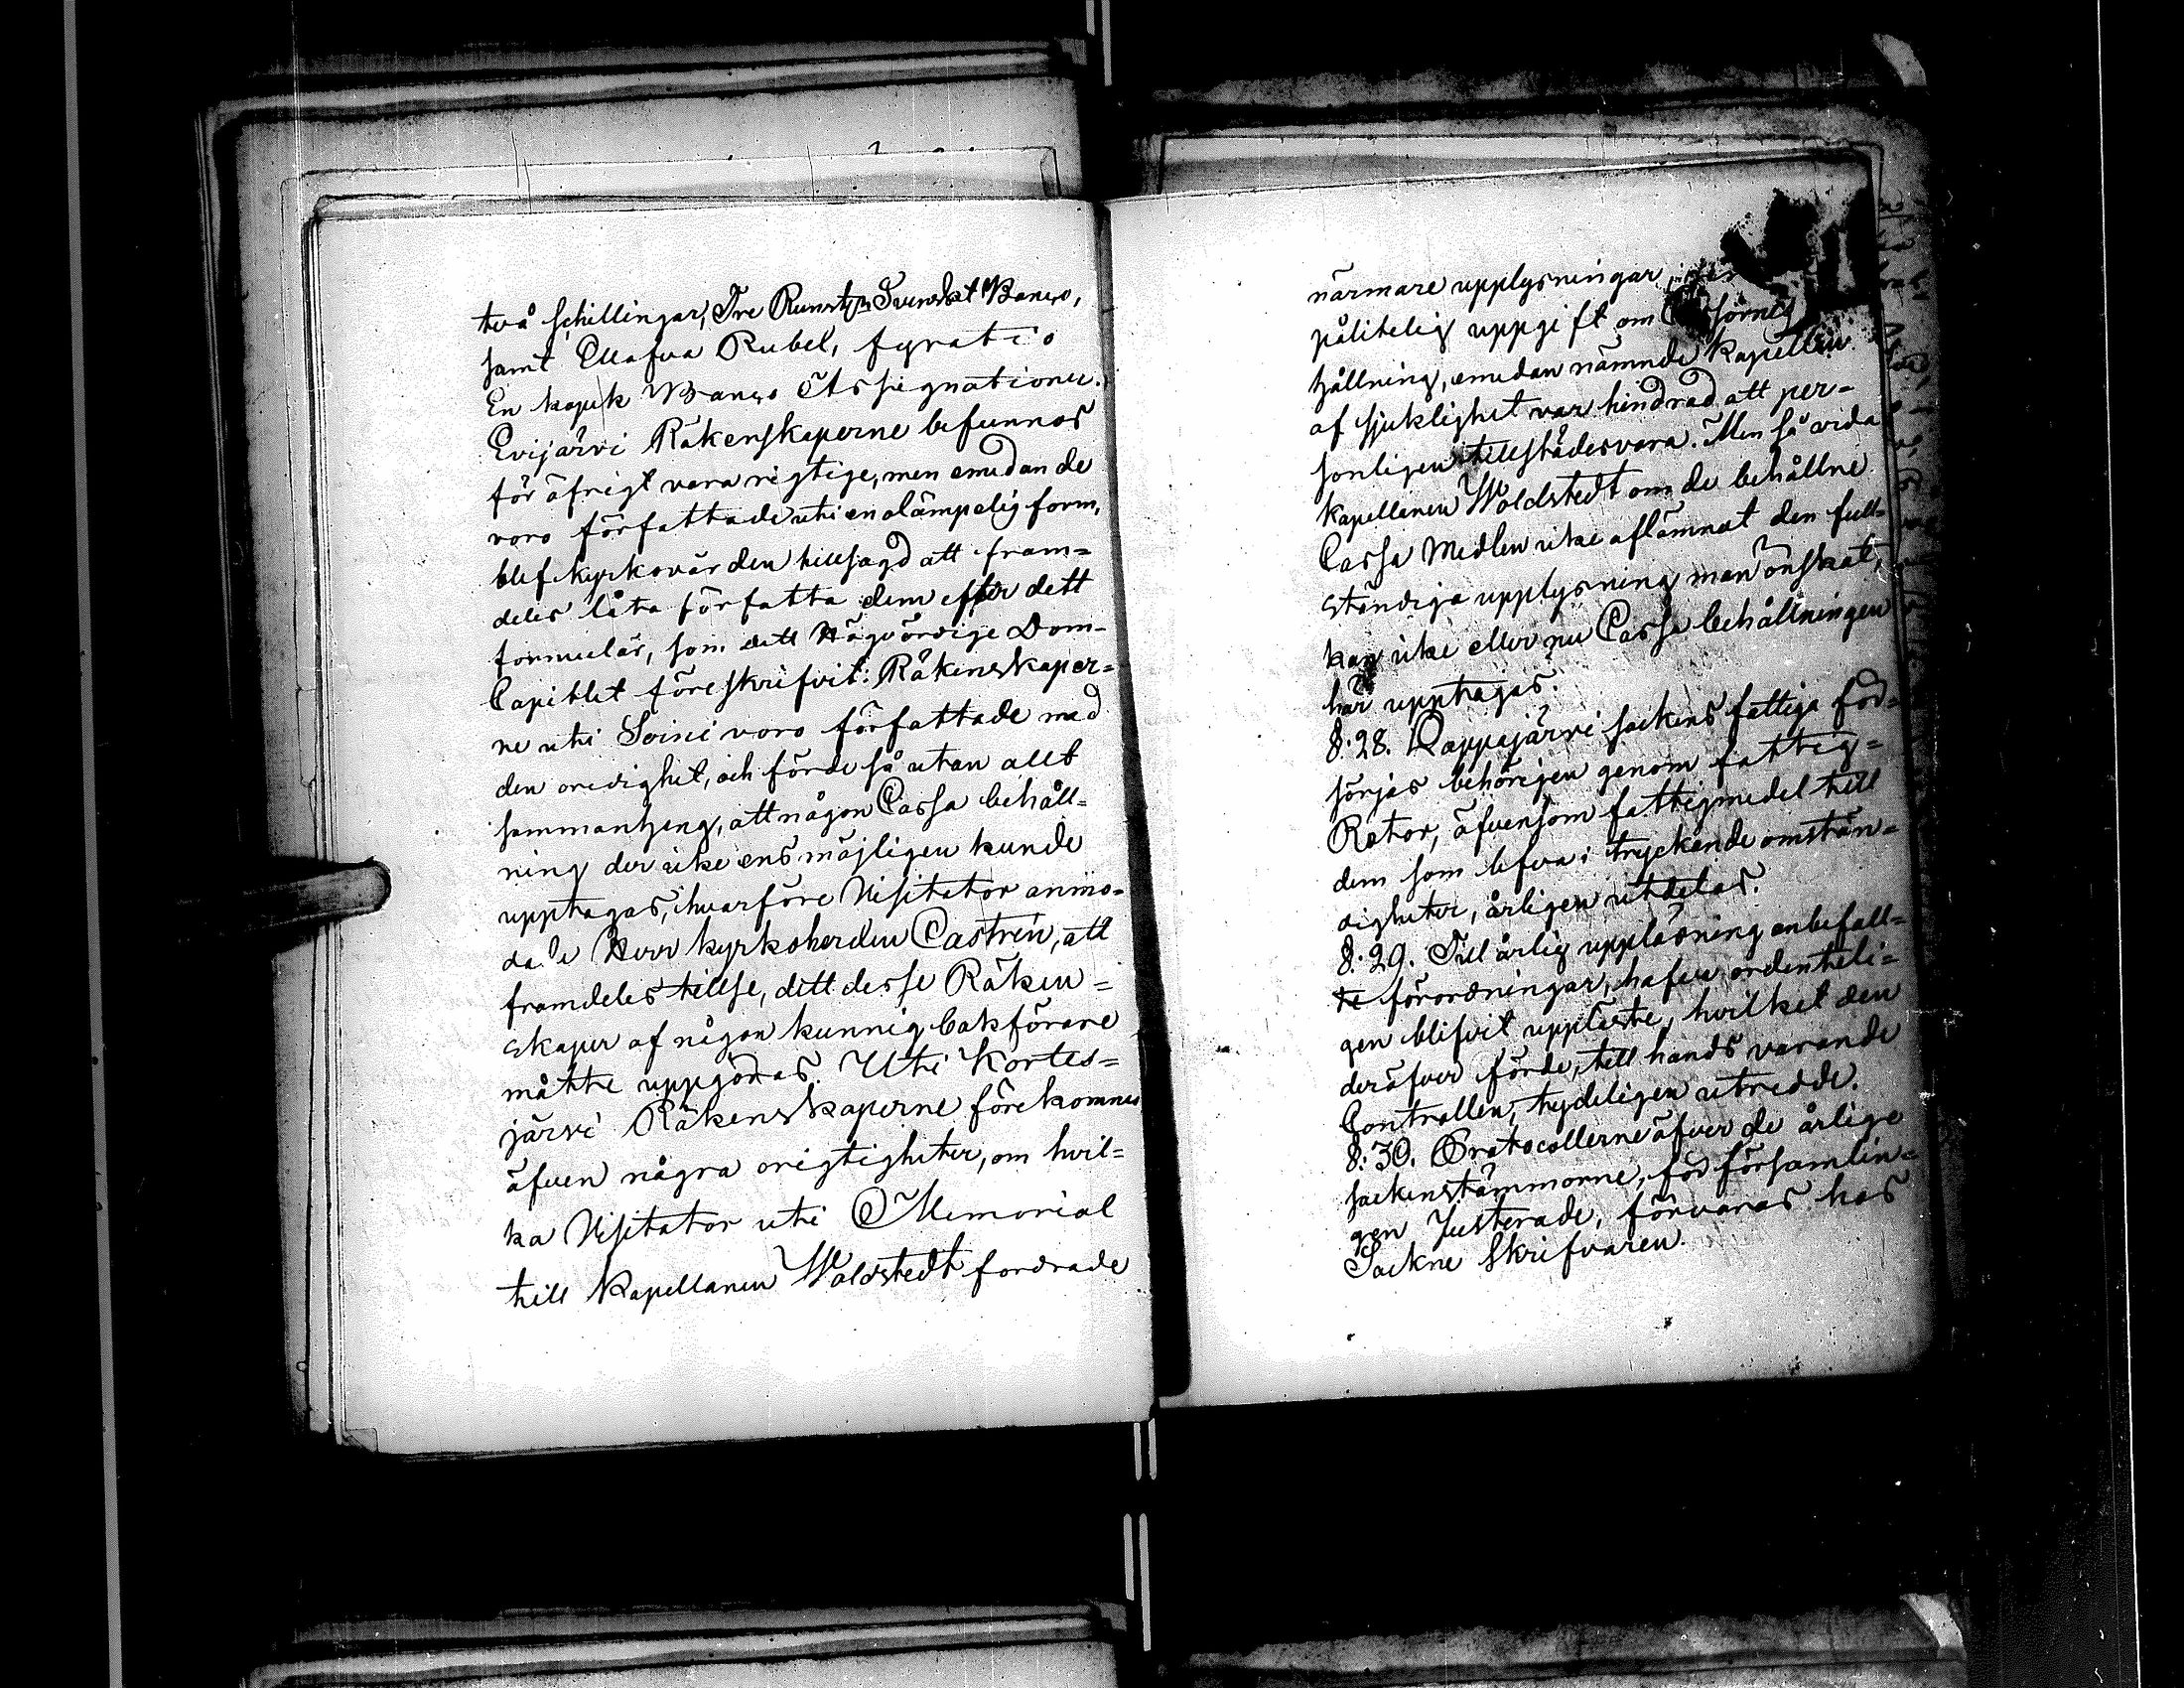 två schillingar, Tre Runst: Svenskt Banco,
samt Ellafva Rubel, fyratio
En kopek Banco Assignationer.
Evijärvi Räkenskaperne befunnos
för öfrigt vara rigtige, men emedan de
voro författade uti en olämpelig form,
blef kyrkovärden tillsagd att fram=
deles låta författa dem efter dett
formulär, som dett Högvördige Dom-
Capitlet föreskrifvit. Räkenskaper=
ne uti Soini voro författade med
den oredighet, och förde så utan allt
sammanheng, att någon Cassa behåll=
ning der icke ens möjligen kunde
upptagas, hvarföre Visitator anmo=
dade Herr kyrkoherden Castrén, att
framdeles tillse, dett desse Räken=
skaper af någon kunnig bokförare
måtte uppgöras. Uti Kortes=
järvi Räkenskaperne förekommes
äfven några origtigheter, om hvil=
ka Visitator uti Memorial
till Kapellanen Woldstedt fordrade
närmare upplysningar,
pålitelig uppgift om
hållning, emedan nämnde Kapellan
af sjuklighet var hindrad att per=
sonligen tillstädesvara. Men så vida
Kapellanen Woldstedt om de behållne
Cassa Medlen icke aflämnat den full=
ständiga upplysning man önskat,
kan icke eller nu Cassa behållningen
här upptagas.
§. 28. Lappajärvi sockens fattiga för=
sörjas behörigen genom fattig=
Rotor, äfvensom fattigmedel till
dem som lefva i tryckende omstän=
digheter, årligen utdelas.
§. 29. Till årlig uppläsning anbefall=
te förordningar, hafva ordenteli=
gen blifvit uppläste, hvilket den
deröfver förde, till hands varande
Controllen, tydeligen utredde.
§. 30. Protocollerne öfver de årlige
sockenstämmorne, för församlin=
gen Justerade, förvaras hos
Sockne Skrifvaren.